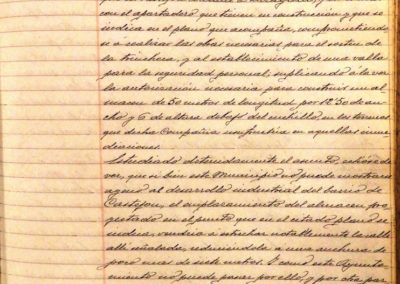 con el apartadero que tienen en construcción y que se
indica en el plano que acompaña, comprometiendo
se a realizar las obras necesarias para el sosten de
la trinchera, y al establecimiento de una valla
para la seguridad personal, suplicando á la vez
la autorización necesaria para construir un al
macen de 50 metros de longitud por 12'50 de an
cho y 6 de altura debajo del cuchillo en los terrenos
que dicha Compañia usufructua en aquellas inme
diaciones.
Estudiado detenidamente el asunto, echóse de
ver, que si bien este Municipio no puede mostrarse
ageno al desarrollo industrial del barrio de
Castejon, el emplazamiento del almacen pro
yectado en el punto que en el citado plano se
indica, vendria á estrechar notablemente la calle
alli señalada, reduciéndola a una anchura de
poco mas de siete metros. Y como este Ayunta
miento no puede pasar por ello, y por otra par